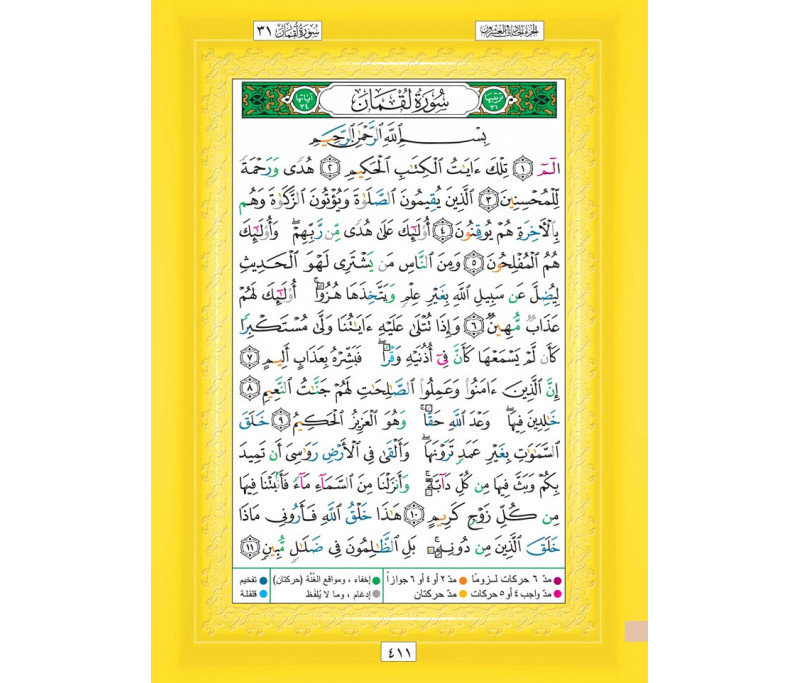 سُورَةُ لُقْمَان ٣١
الجزء الحادي والعشرون
ترتيبها ٣١
سُورَةُ لُقْمَان
آياتها ٣٤
بِسْمِ ٱللَّهِ ٱلرَّحْمَٰنِ ٱلرَّحِيمِ
الٓمٓ ١ تِلْكَ ءَايَٰتُ ٱلْكِتَٰبِ ٱلْحَكِيمِ ٢ هُدًى وَرَحْمَةً
لِّلْمُحْسِنِينَ ٣ ٱلَّذِينَ يُقِيمُونَ ٱلصَّلَوٰةَ وَيُؤْتُونَ ٱلزَّكَوٰةَ وَهُم
بِٱلْءَاخِرَةِ هُمْ يُوقِنُونَ ٤ أُو۟لَٰٓئِكَ عَلَىٰ هُدًى مِّن رَّبِّهِمْ ۖ وَأُو۟لَٰٓئِكَ
هُمُ ٱلْمُفْلِحُونَ ٥ وَمِنَ ٱلنَّاسِ مَن يَشْتَرِى لَهْوَ ٱلْحَدِيثِ
لِيُضِلَّ عَن سَبِيلِ ٱللَّهِ بِغَيْرِ عِلْمٍ وَيَتَّخِذَهَا هُزُوًا ۚ أُو۟لَٰٓئِكَ لَهُمْ
عَذَابٌ مُّهِينٌ ٦ وَإِذَا تُتْلَىٰ عَلَيْهِ ءَايَٰتُنَا وَلَّىٰ مُسْتَكْبِرًا
كَأَن لَّمْ يَسْمَعْهَا كَأَنَّ فِىٓ أُذُنَيْهِ وَقْرًا ۖ فَبَشِّرْهُ بِعَذَابٍ أَلِيمٍ ٧
إِنَّ ٱلَّذِينَ ءَامَنُوا۟ وَعَمِلُوا۟ ٱلصَّٰلِحَٰتِ لَهُمْ جَنَّٰتُ ٱلنَّعِيمِ ٨
خَٰلِدِينَ فِيهَا ۖ وَعْدَ ٱللَّهِ حَقًّا ۚ وَهُوَ ٱلْعَزِيزُ ٱلْحَكِيمُ ٩ خَلَقَ
ٱلسَّمَٰوَٰتِ بِغَيْرِ عَمَدٍ تَرَوْنَهَا ۖ وَأَلْقَىٰ فِى ٱلْأَرْضِ رَوَٰسِىَ أَن تَمِيدَ
بِكُمْ وَبَثَّ فِيهَا مِن كُلِّ دَآبَّةٍ ۚ وَأَنزَلْنَا مِنَ ٱلسَّمَآءِ مَآءً فَأَنۢبَتْنَا فِيهَا
مِن كُلِّ زَوْجٍ كَرِيمٍ ١٠ هَٰذَا خَلْقُ ٱللَّهِ فَأَرُونِى مَاذَا
خَلَقَ ٱلَّذِينَ مِن دُونِهِۦ ۚ بَلِ ٱلظَّٰلِمُونَ فِى ضَلَٰلٍ مُّبِينٍ ١١
مدّ ٦ حركات لـزومًا
مدّ ٢ أو ٤ أو ٦ جوازاً
إخفاء ، ومواقع الغُنَّة (حركتان)
تفخيم
مدّ واجب ٤ أو ٥ حركات
مدّ حركتان
إدغام ، وما لا يُلفَظ
قلقلة
٤١١